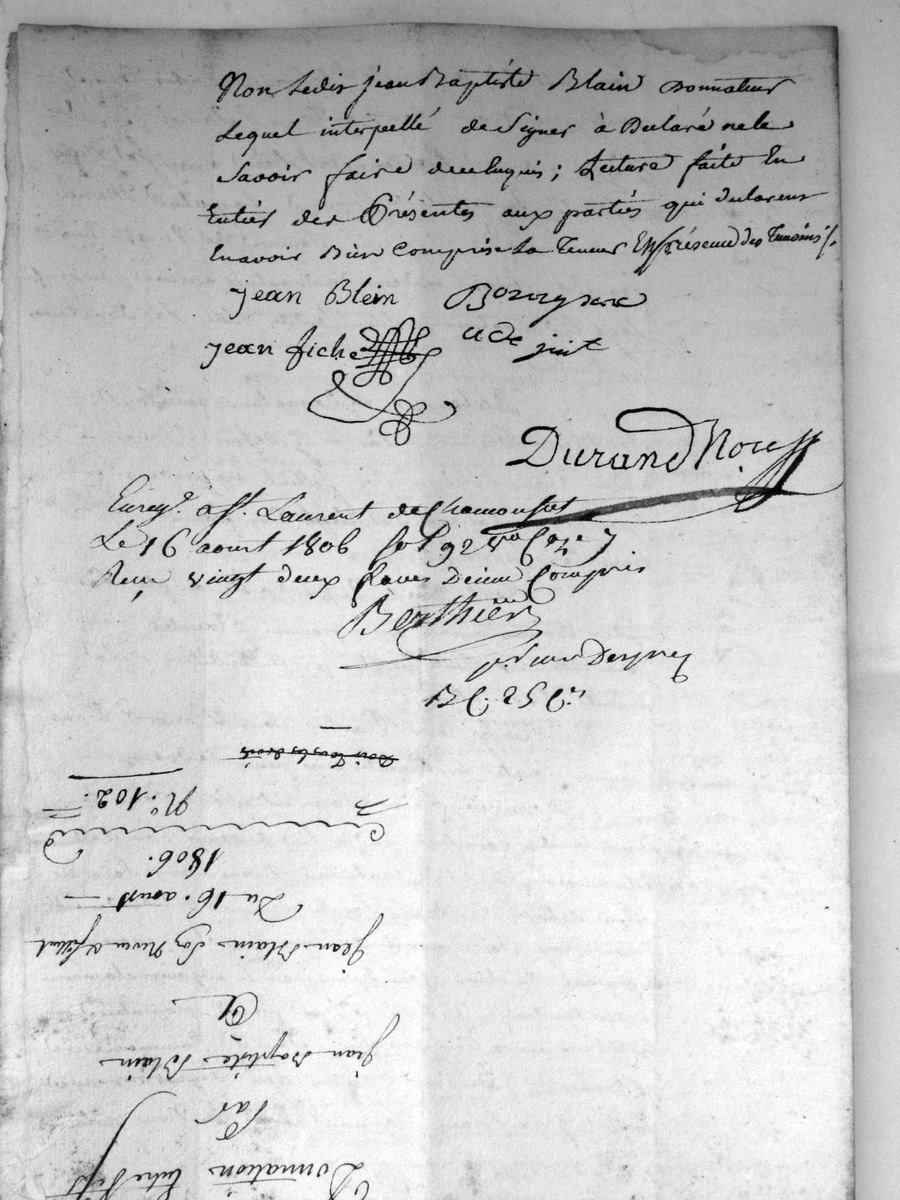 Non Ledit jean Baptiste Blain Donnateur
Lequel interpellé de Signer à Déclaré ne le
Savoir faire de ce Enquis; Lecture faite En
Entiér des Présentes aux partiés qui déclarent
En avoir Bien Compris La Teneur En présence des Temoins
jean Blein
jean fiche
Durand Not
Enreg. a St. Laurent de Chamousset
Le 16 aoust 1806 fol 92 vo Cse 7
Reçu vingt deux francs Décime Compris
Berthier
Doit Tous les droits
No. 102.
1806.
Du 16. aoust
jean Blain Son Neveu &
&
jean Baptiste Blain
Par
Donnation Entre Vifs